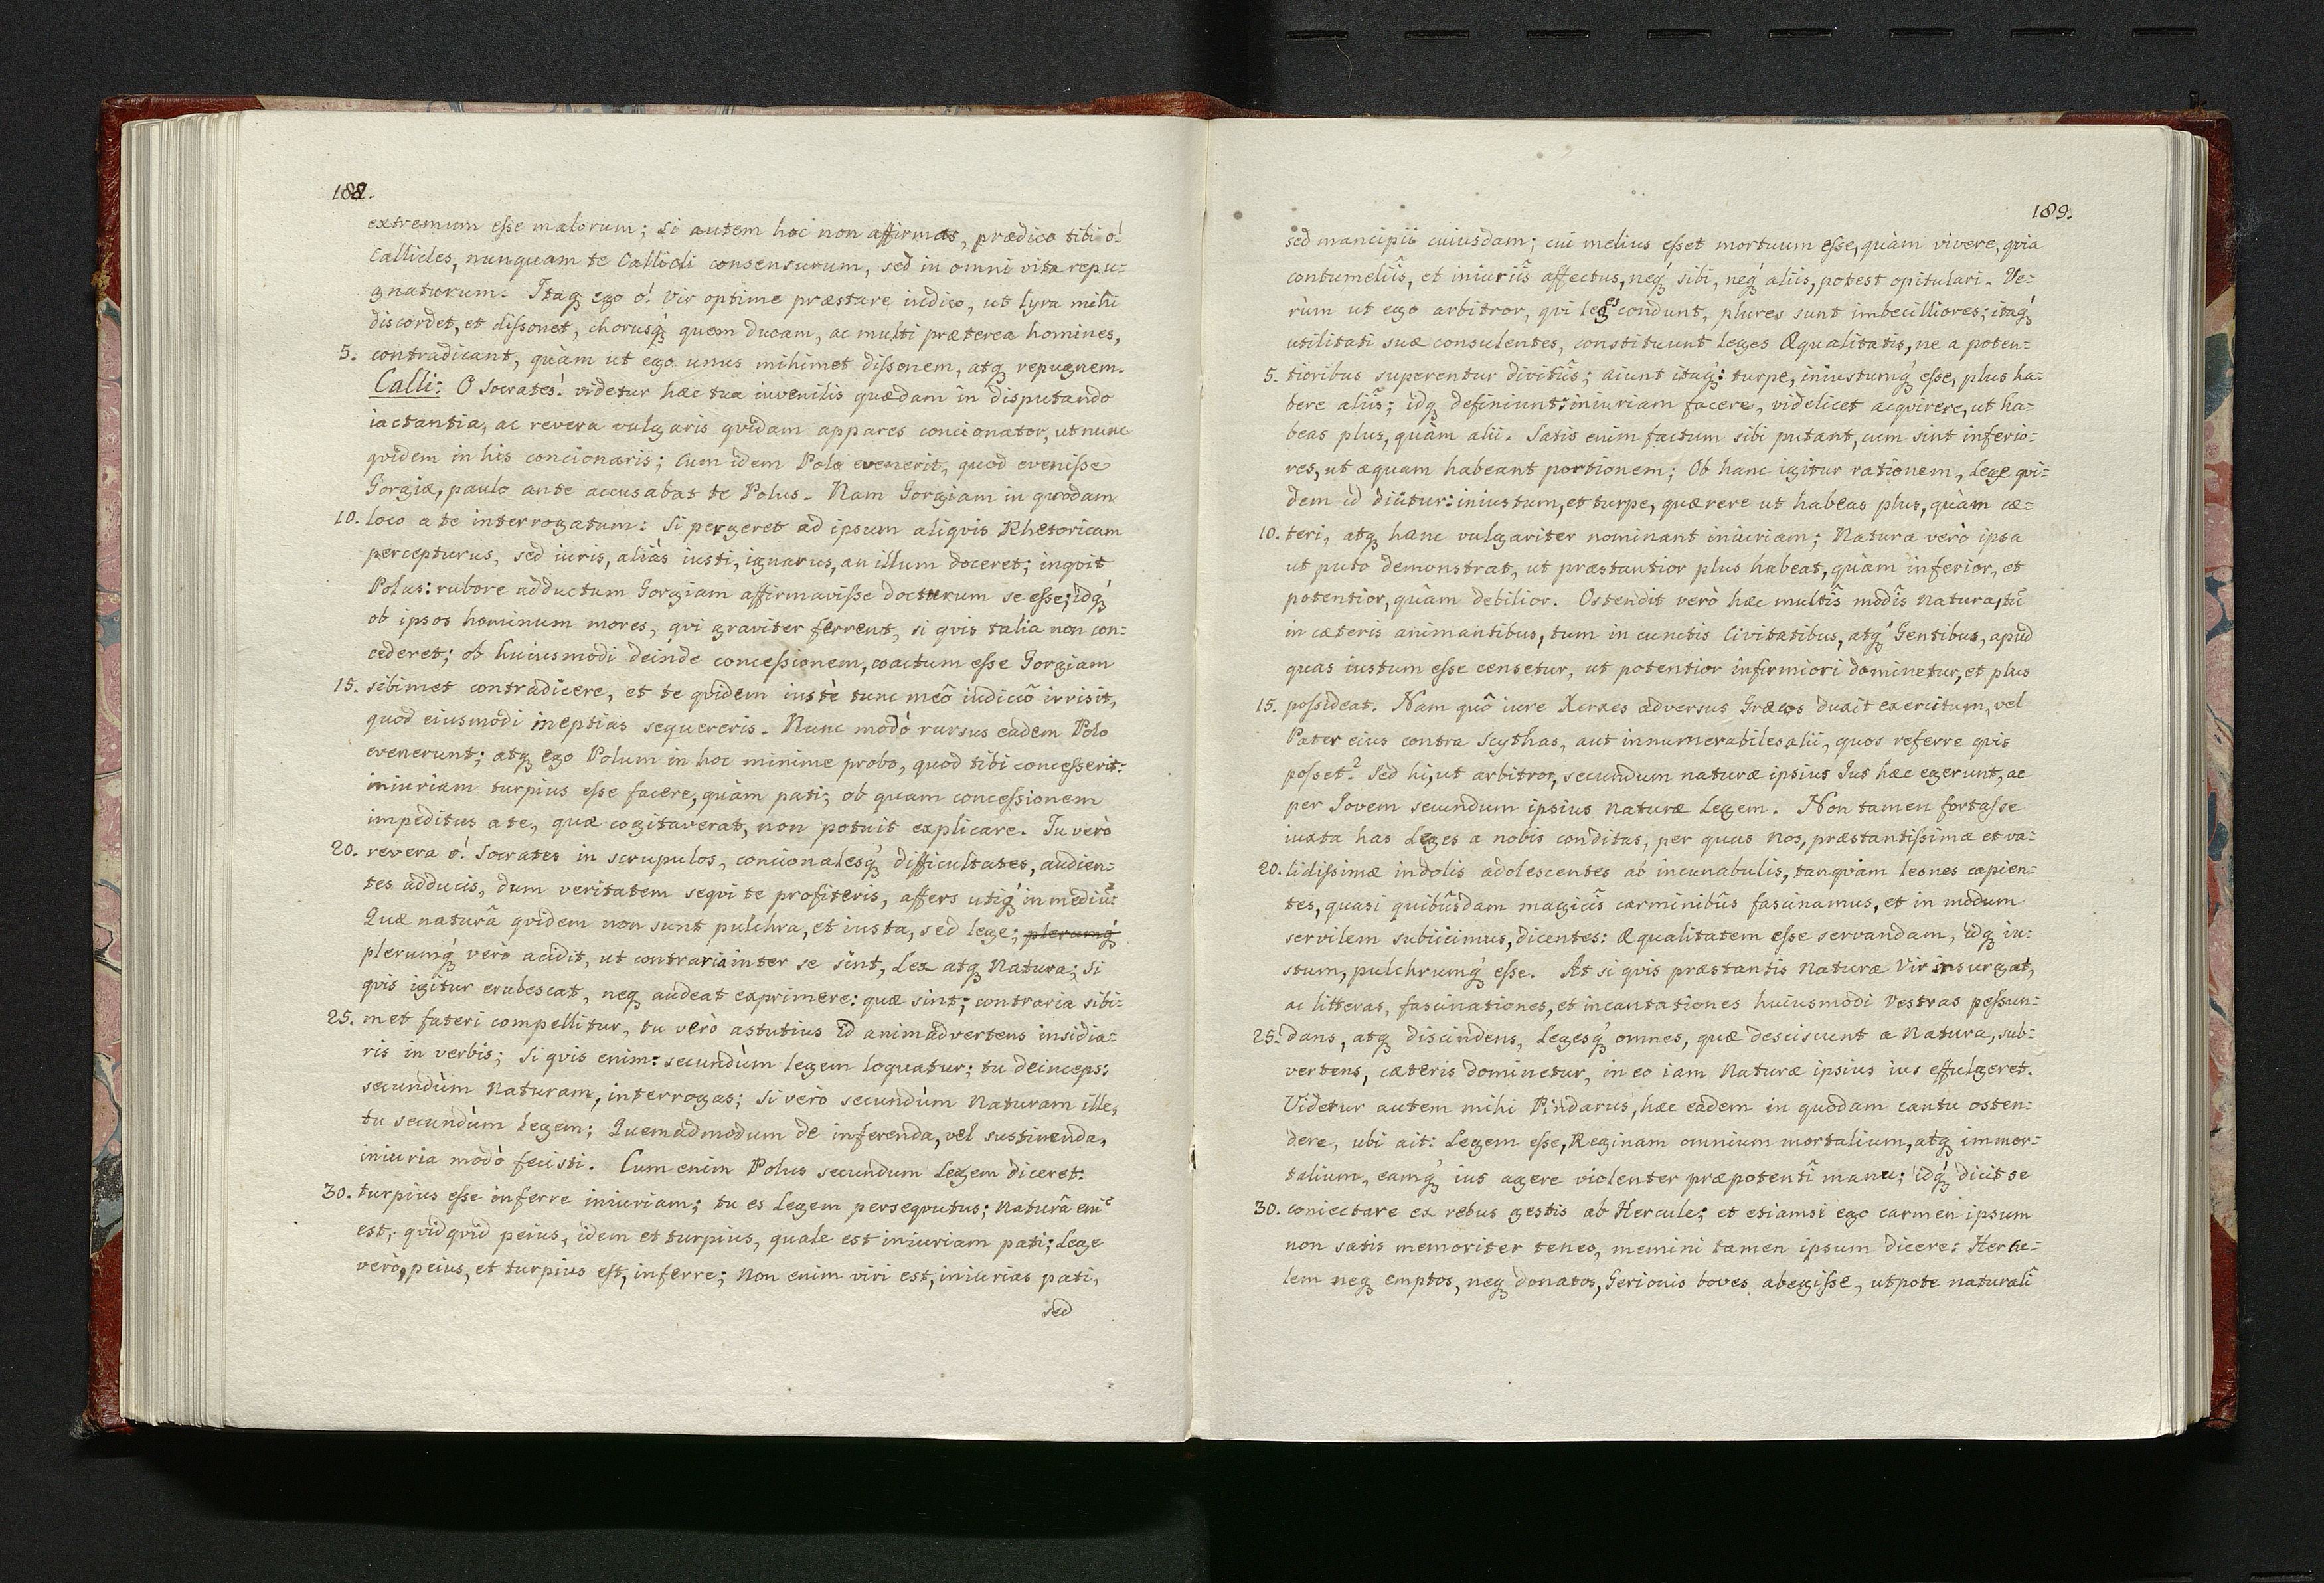 188.
extremum eſse malorum; Si autem hoc non affirmas, prædico tibi ó!
Callicles, nunquam te Callicli consensurum, sed in omni vita repu:
gnaturum. Itaq ego ó! Vir optime præstare iudico, ut lyra mihi
discordet, et diſsonet, chorusq́ quem ducam, ac multi præterea homines,
5. contradicant, quàm ut ego unus mihimet diſsonem, atq repugnem.
Calli: O Socrates! videtur hæc tua iuvenilis quædam in disputando
iactantia, ac revera vulgaris qvidam appares concionator, ut nunc
qvidem in his concionaris; Cum idem Polo evenerit, quod eveniſse
Gorgiæ, paulo ante accusabat te Polus. Nam Gorgiam in quodam
10. loco a te interrogatum: Si pergeret ad ipsum aliqvis Rhetoricam
percepturus, sed iuris, aliàs iusti, ignarus, an illum doceret; inqvit
Polus: rubore adductum Gorgiam affirmaviſse docturum se eſse; idq́
ob ipsos hominum mores, qvi graviter ferrent, si qvis talia non con:
cederet; ob huiusmodi deinde conceſsionem, coactum eſse Gorgiam
15. sibimet contradicere, et te qvidem iustè tunc meô iudiciô irrisit,
quod eiusmodi ineptias sequereris. Nunc modò rursus eadem Polo
evenerunt; atq ego Polum in hoc minime probo, quod tibi conceſserit:
iniuriam turpius eſse facere, quàm pati; ob quam conceſsionem
impeditus a te, quæ cogitaverat, non potuit explicare. Tu verò
20. revera ó! Socrates in scrupulos, concionalesq́ difficultates, audien:
tes adducis, dum veritatem seqvi te profiteris, affers utiq́ in mediū:
Quæ naturâ qvidem non sunt pulchra, et iusta, sed lege; plerumq́
plerumq́ verò acidit, ut contraria inter se sint, Lex atq Natura; Si
qvis igitur erubescat, neq audeat exprimere: quæ sint; contraria sibi:
25. met fateri compellitur, tu verò astutius id animadvertens insidia:
ris in verbis; Si qvis enim: secundùm legem loquatur; tu deinceps:
secundùm Naturam, interrogas; Si verò secundùm Naturam ille,
tu secundùm Legem; Quemadmodum de inferenda, vel sustinenda,
iniuria modò fecisti. Cum enim Polus secundum Legem diceret:
30. turpius eſse inferre iniuriam; tu es Legem perseqvutus; Naturâ eni͂
est, qvidqvid peius, idem et turpius, quale est iniuriam pati; Lege
verò, peius, et turpius eſt, inferre; Non enim viri est, iniurias pati,
sed
189.
sed mancipii cuiusdam; cui melius eſset mortuum eſse, quàm vivere, qvia
contumeliîs, et iniuriîs affectus, neq́ sibi, neq́ aliis, potest opitulari. Ve:
rùm ut ego arbitror, qvi leges condunt, plures sunt imbecilliores; itaq́
utilitati suæ consulentes, constituunt leges Æqualitatis, ne a poten:
5. tioribus superentur divitiîs; aiunt itaq́: turpe, iniustumq́ eſse, plus ha:
bere aliîs; idq definiunt: iniuriam facere, videlicet acqvirere, ut ha:
beas plus, quàm alii. Satis enim factum sibi putant, cum sint inferio:
res, ut æquam habeant portionem; Ob hanc igitur rationem, Lege qvi:
dem id dicitur: iniustum, et turpe, quærere ut habeas plus, quàm cæ:
10. teri, atq hanc vulgariter nominant iniuriam; Natura verò ipsa
ut puto demonstrat, ut præstantior plus habeat, quàm inferior, et
potentior, quàm debilior. Ostendit verò hæc multîs modîs Natura, tū
in cæteris animantibus, tum in cunctis Civitatibus, atq́ Gentibus, apud
quas iustum eſse censetur, ut potentior infirmiori dominetur, et plus
15. poſsideat. Nam quô iure Xerxes adversus Græcos duxit exercitum, vel
Pater eius contra Scythas, aut innumerabiles alii, quos referre qvis
poſset? Sed hi, ut arbitror, secundum naturæ ipsius Jus hæc egerunt, ac
per Jovem secundum ipsius Naturæ Legem. Non tamen fortaſse
iuxta has Leges a nobis conditas, per quas Nos, præstantiſsimæ et va:
20. lidiſsimæ indolis adolescentes ab incunabulis, tanqvam leones capien:
tes, quasi quibûsdam magicîs carminibûs fascinamus, et in modum
servilem subiicimus, dicentes: Æqualitatem eſse servandam, idq iu:
stum, pulchrumq́ eſse. At si qvis præstantis Naturæ Vir insurgat,
ac litteras, fascinationes, et incantationes huiusmodi Vestras peſsun:
25. dans, atq discindens, Legesq́ omnes, quæ desciscunt a Natura, sub:
vertens, cæteris dominetur, in eo iam Naturæ ipsius ius effulgeret.
Videtur autem mihi Pindarus, hæc eadem in quodam cantu osten:
dere, ubi ait: Legem eſse, Reginam omnium mortalium, atq immor:
talium, eamq́ ius agere violenter præpotentî manu; idq́ dicit se
30. coniectare ex rebus gestis ab Hercule; et etiamsi ego carmen ipsum
non satis memoriter teneo, memini tamen ipsum dicere: Hercu:
lem neq emptos, neq donatos, Gerionis boves abegiſse, utpote naturalî